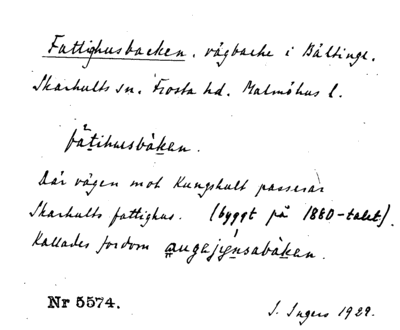 Fattighusbacken. vägbacke i Bältinge.
Skarhults sn. Frosta hd. Malmöhus l.
fåtihusbakan.
Där vägen mot Kungshult passerar
Skarhults fattighus. (byggt på 1880-talet).
Kallades fordom
Nr 5574.
I. Ingers 1929.